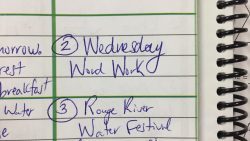 ② Wednesday
Word Work
③ Rouge River
Water Festival
morrows
rest
breakfast
Water